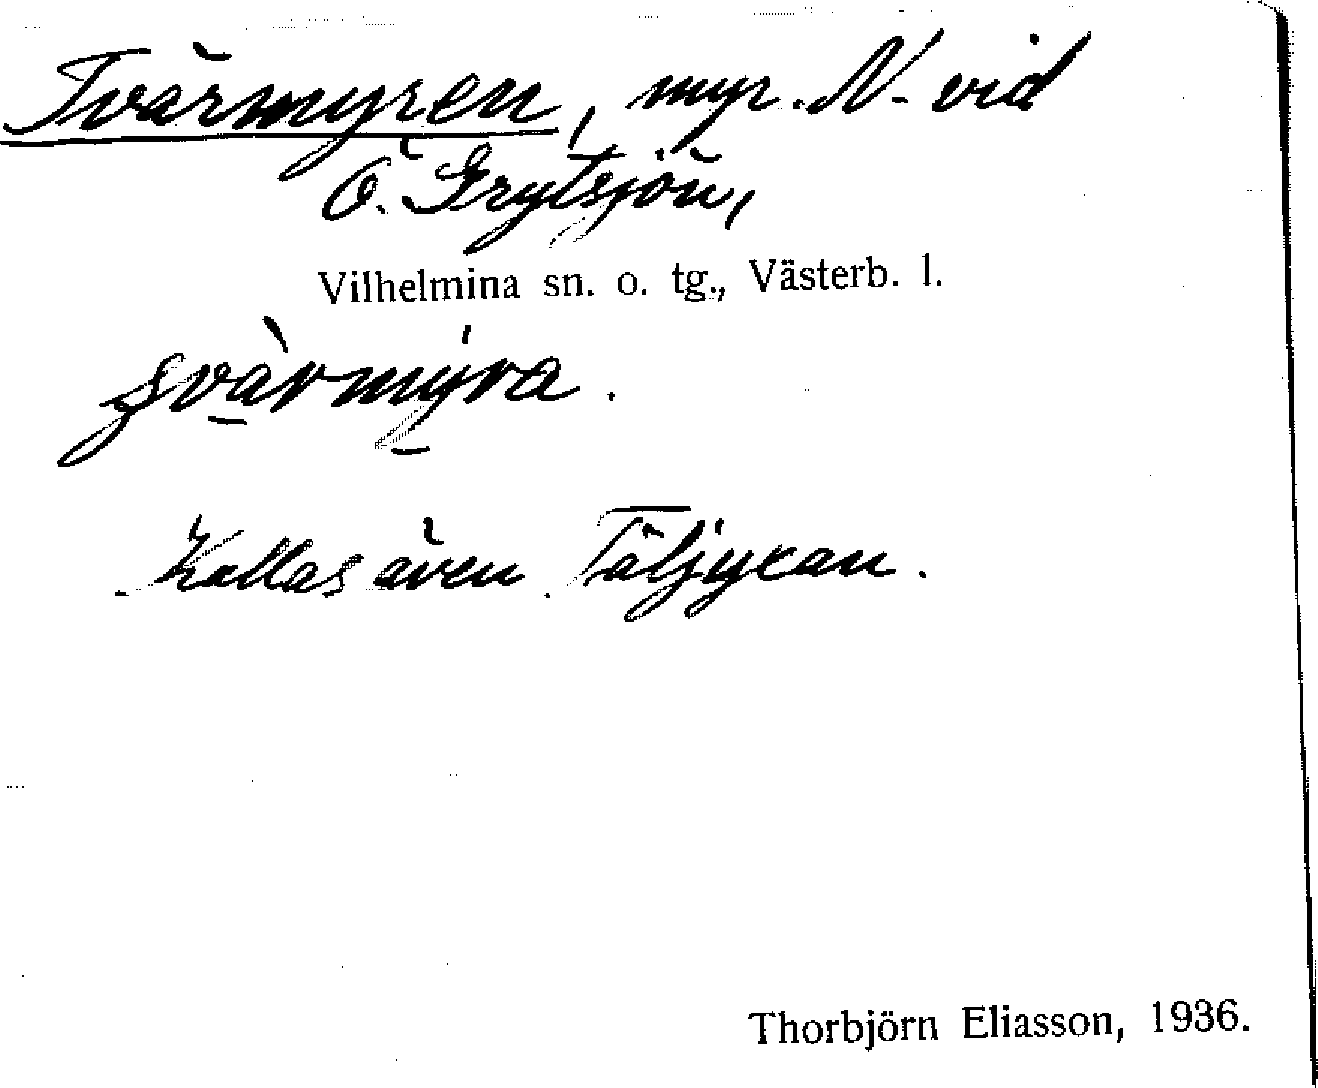 Tvärmyren, myr. N. vid
Ö. Grytsjön,
Vilhelmina sn. o. tg., Västerb. l.
Kallas även Täljykan.
Thorbjörn Eliasson, 1936.